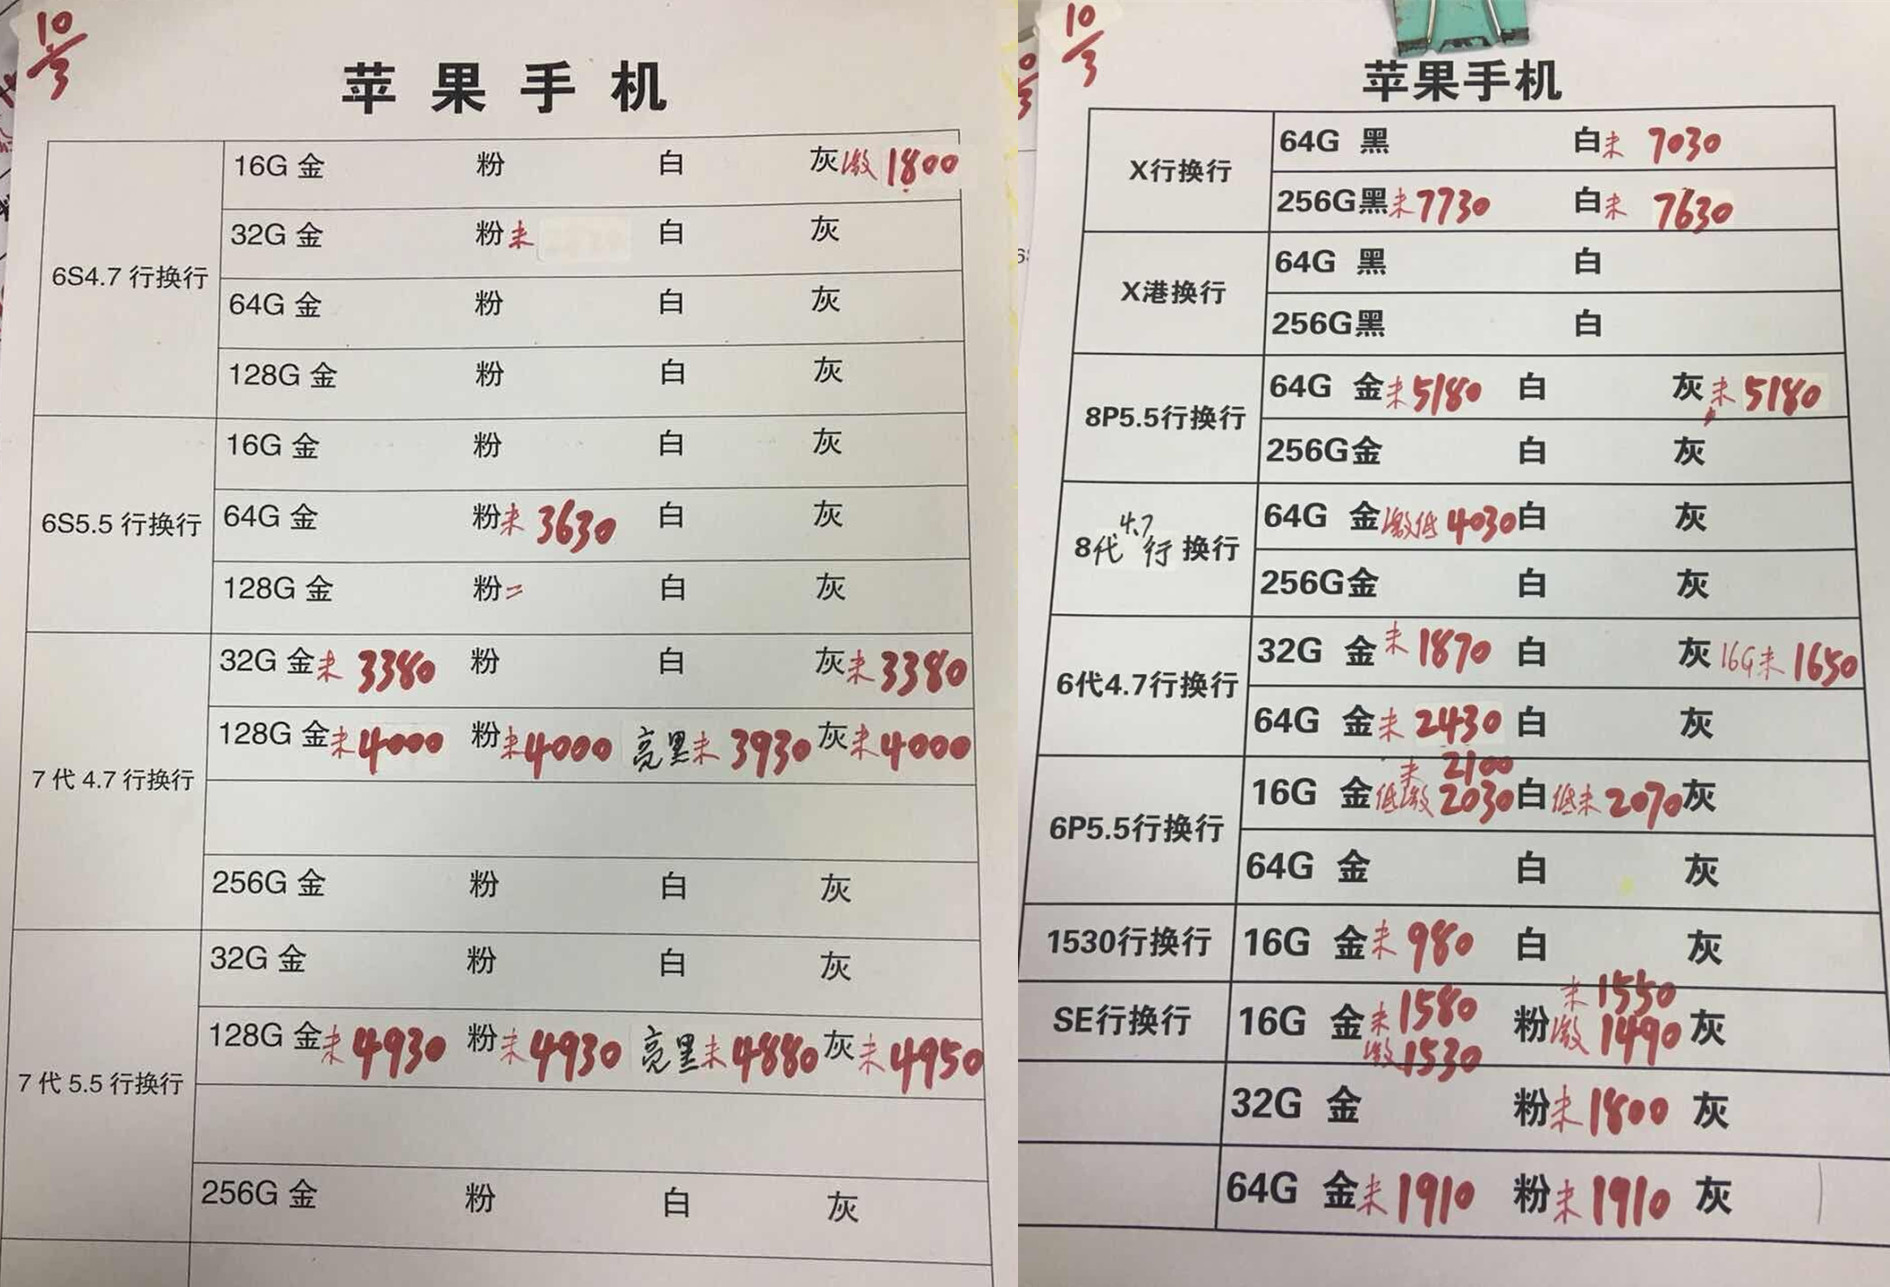 10/3
苹果手机
6S4.7 行换行
16G 金 粉 白 灰 激 1800
32G 金 粉 未 白 灰
64G 金 粉 白 灰
128G 金 粉 白 灰
6S5.5 行换行
16G 金 粉 白 灰
64G 金 粉 未 3630 白 灰
128G 金 粉 = 白 灰
7 代 4.7 行换行
32G 金 未 3380 粉 白 灰 未 3380
128G 金 未 4000 粉 未 4000 亮黑 未 3930 灰 未 4000
256G 金 粉 白 灰
7 代 5.5 行换行
32G 金 粉 白 灰
128G 金 未 4930 粉 未 4930 亮黑 未 4880 灰 未 4950
256G 金 粉 白 灰
10/3
苹果手机
X行换行
64G 黑 白 未 7030
256G黑 未 7730 白 未 7630
X港换行
64G 黑 白
256G黑 白
8P5.5行换行
64G 金 未 5180 白 灰 未 5180
256G金 白 灰
8代 4.7 行 换行
64G 金 激低 4030 白 灰
256G金 白 灰
6代4.7行换行
32G 金 未 1870 白 灰 16G未 1650
64G 金 未 2430 白 灰
6P5.5行换行
未 2100
16G 金 低激 2030 白 低未 2070 灰
64G 金 白 灰
1530行换行
16G 金 未 980 白 灰
SE行换行
未 1550
16G 金 未 1580 粉 激 1490 灰
激 1530
32G 金 粉 未 1800 灰
64G 金 未 1910 粉 未 1910 灰